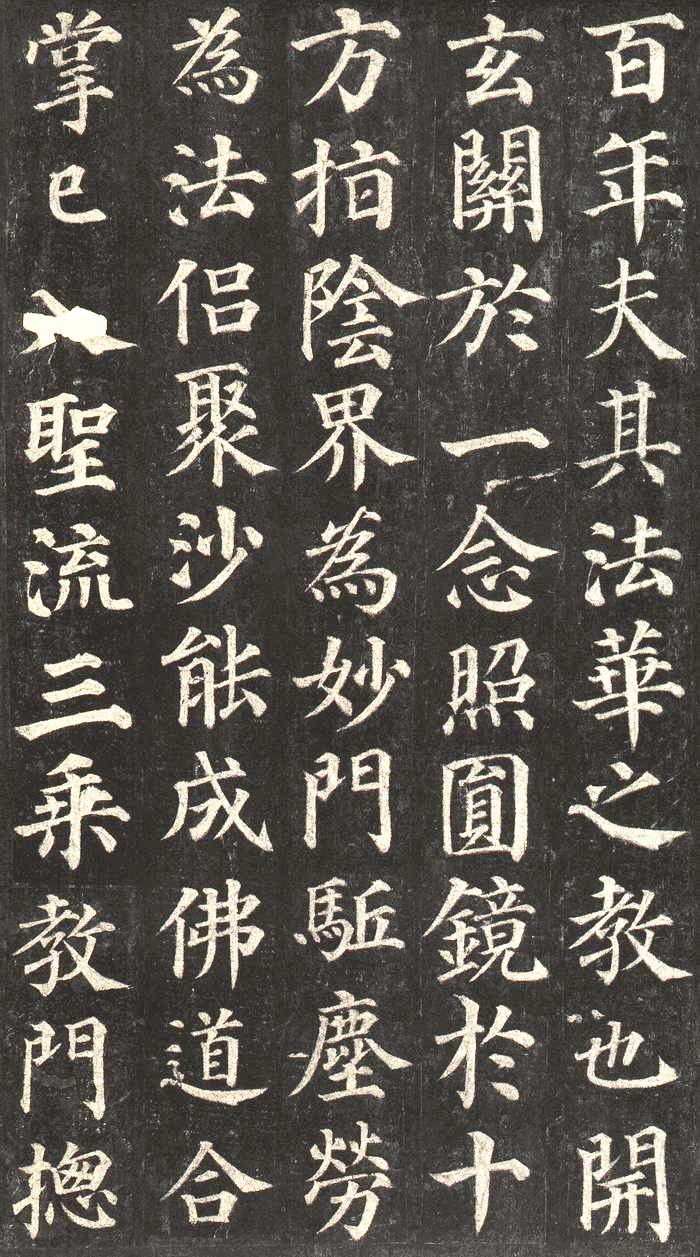 百年夫其法華之教也開
玄關於一念照圓鏡於十
方指陰界為妙門駈塵勞
為法侶聚沙能成佛道合
掌已入聖流三乗教門摠